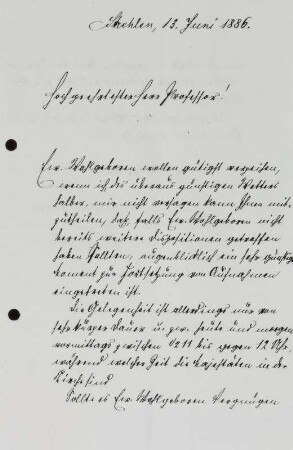 Stechlen, 13. Juni 1886.
Hochgeehrtester Herr Professor!
Ew. Wohlgeboren wollen gütigst verzeihen,
wenn ich, des überaus günstigen Wetters
halber, mir nicht versagen kann, Ihnen mit-
zutheilen, daß, falls Ew. Wohlgeboren nicht
bereits weitere Dispositionen getroffen
haben sollten, augenblicklich ein sehr günstiger
Moment zur Fortsetzung von Aufnahmen
eingetreten ist.
Die Gelegenheit ist allerdings nur von
sehr kurzer Dauer u. zw. heute und morgen
vormittags zwischen 1/2 11 bis gegen 12 Uhr,
während welcher Zeit die Majestäten in der
Kirche sind
Sollte es Ew. Wohlgeboren Vergnügen